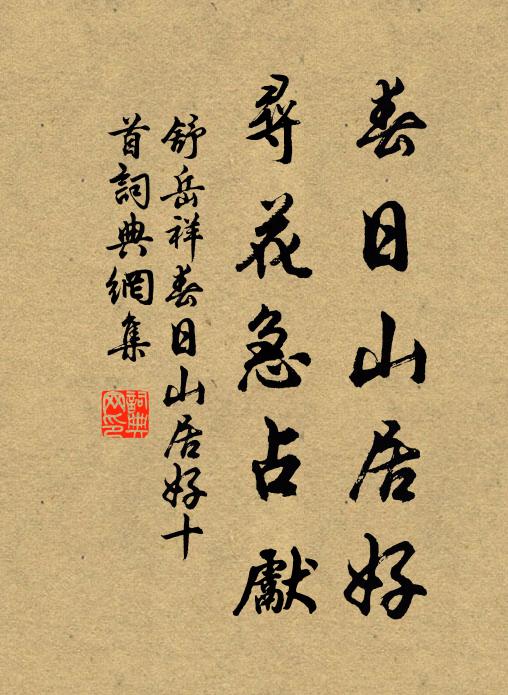 春日山居好
尋花急占獻
舒岳祥春日山居好十
首詞典網集
詞典
网印